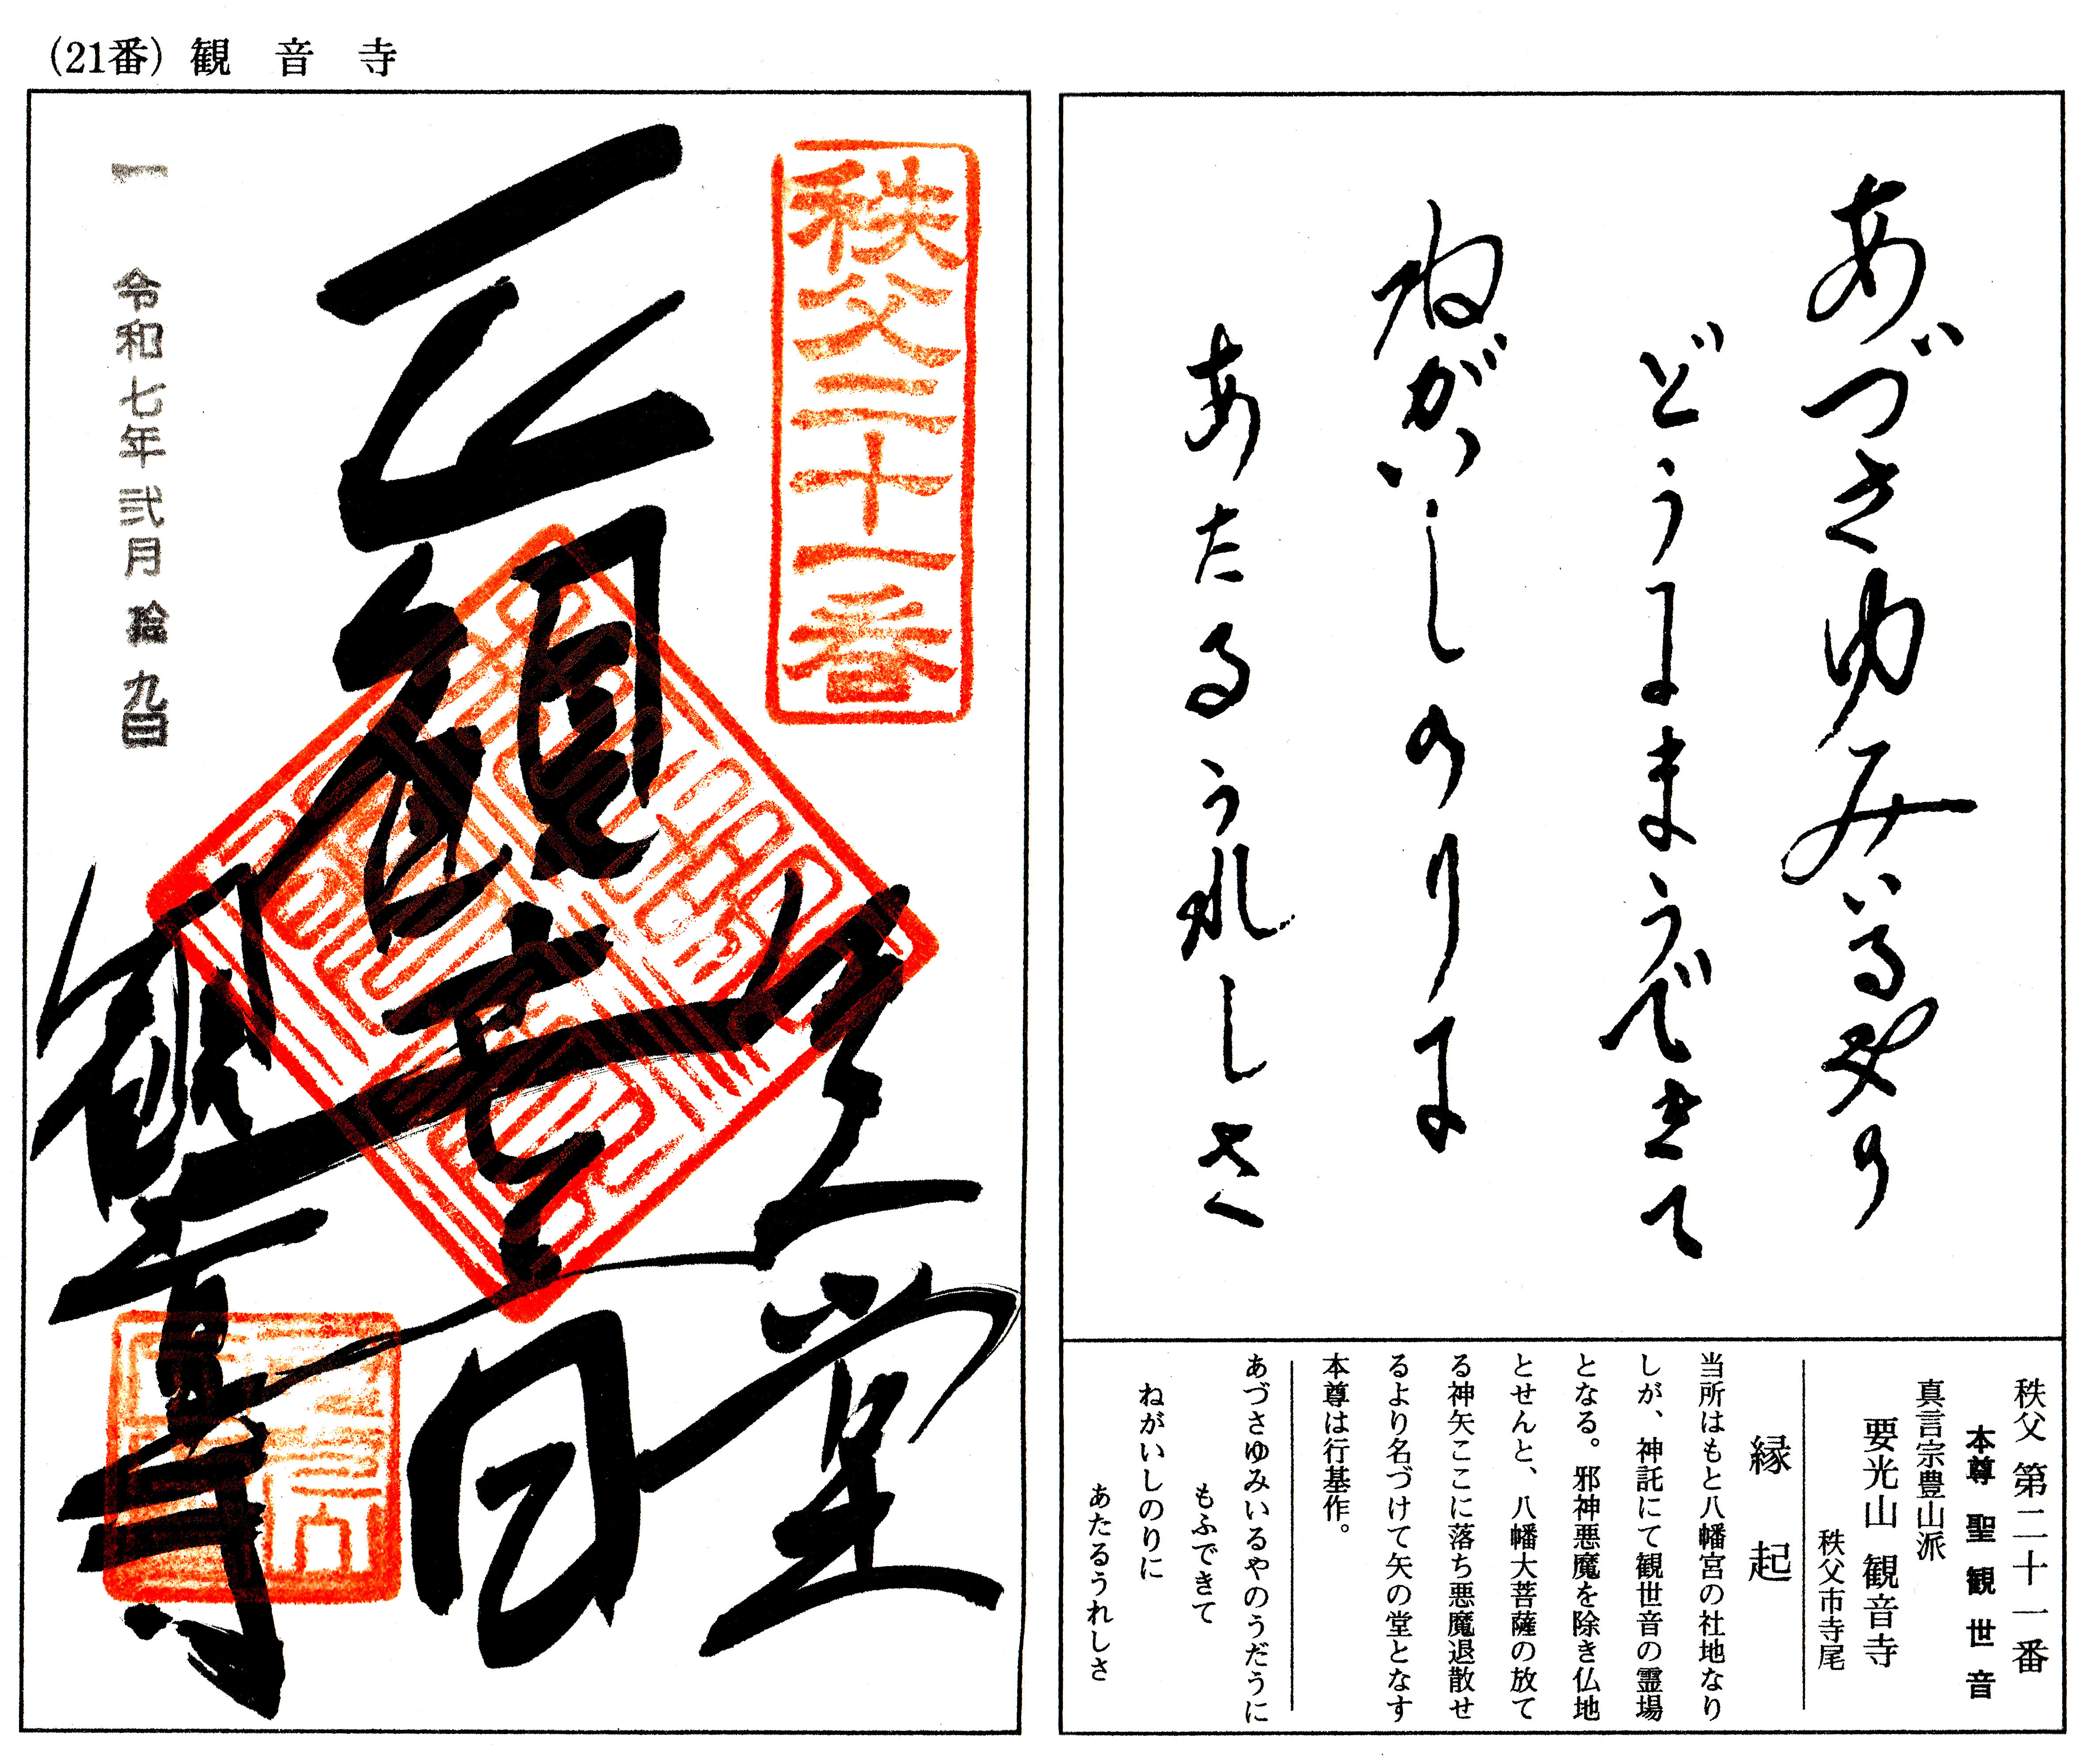 (21番) 観音寺
秩父二十一番
正観世音
矢之堂
観音寺
令和七年弐月拾九日
あづさゆみいる矢の
どうにまうできて
ねがいしのりに
あたるうれしさ
秩父 第二十一番
本尊 聖観世音
真言宗豊山派
要光山 観音寺
秩父市寺尾
縁起
当所はもと八幡宮の社地なり
しが、神託にて観世音の霊場
となる。邪神悪魔を除き仏地
とせんと、八幡大菩薩の放て
る神矢ここに落ち悪魔退散せ
るより名づけて矢の堂となす
本尊は行基作。
あづさゆみいるやのうだうに
もふできて
ねがいしのりに
あたるうれしさ